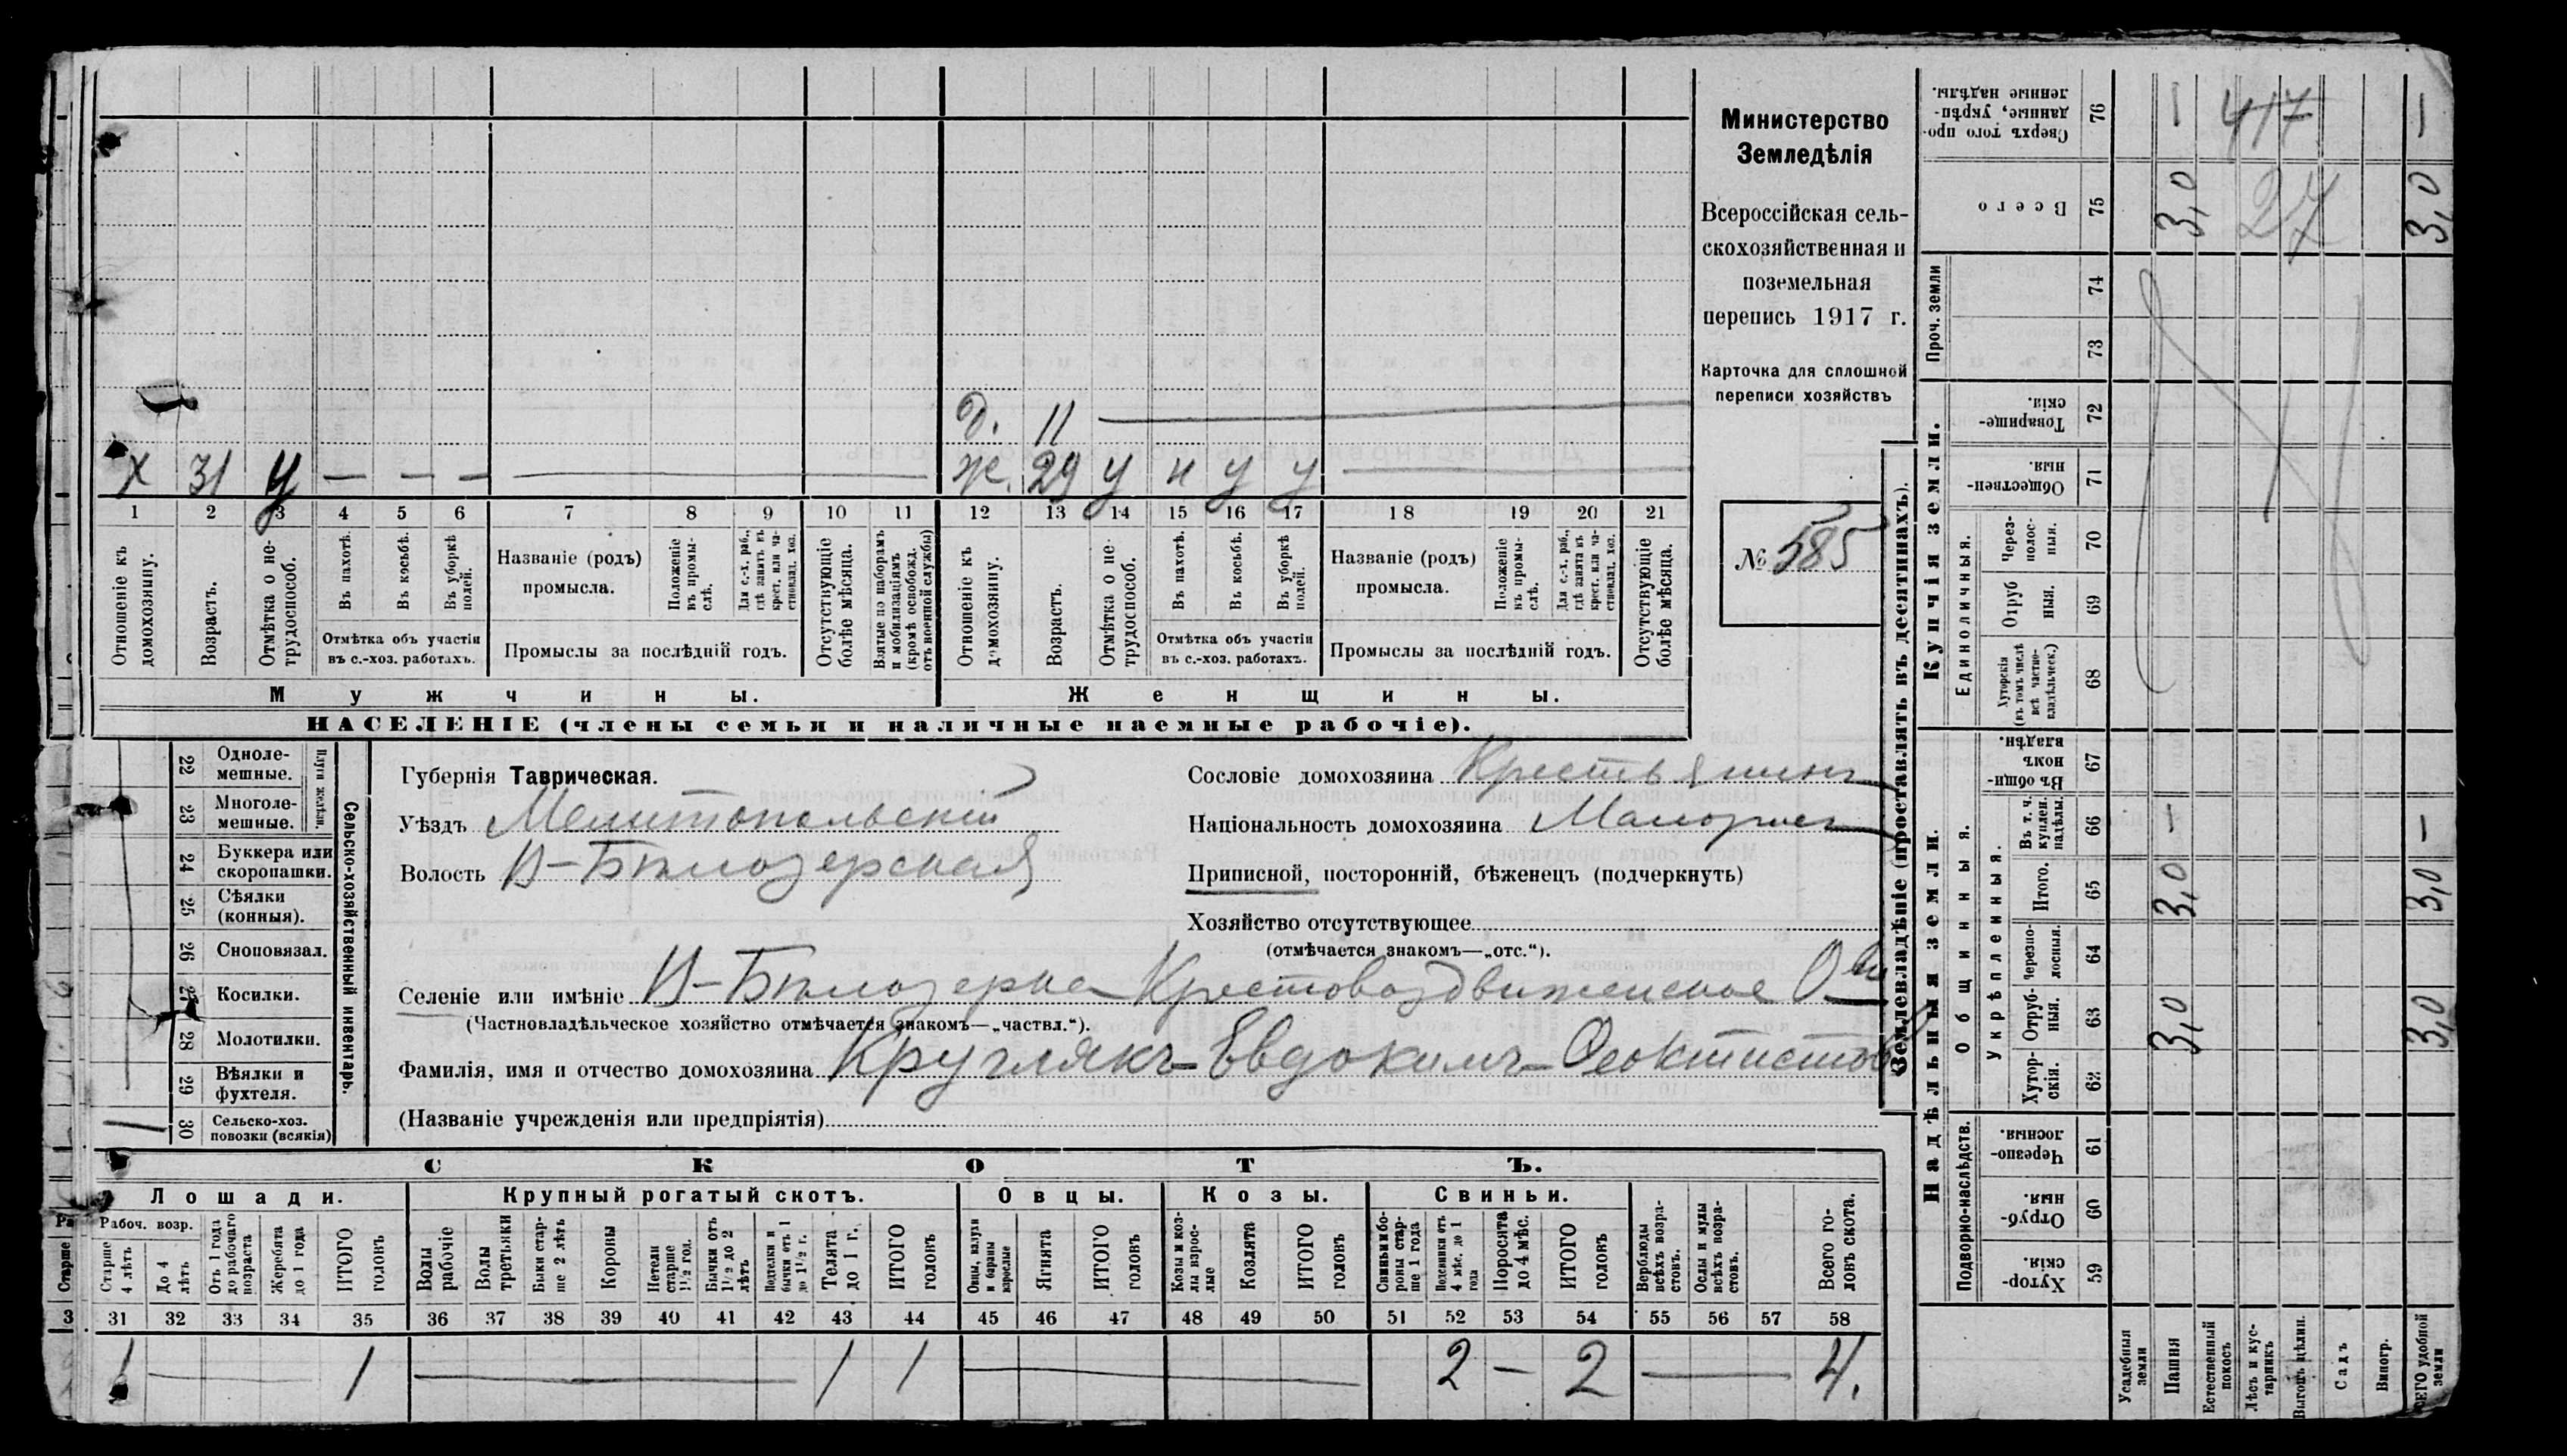 Министерство
Земледѣлія
Всероссійская сель-
скохозяйственная и
поземельная
перепись 1917 г.
Карточка для сплошной
переписи хозяйствъ
№ 585
д. 11
х 31 у — — — — ж. 29 у н у у
1 2 3 4 5 6 7 8 9 10 11 12 13 14 15 16 17 18 19 20 21
Отношеніе къ домохозяину.
Возрастъ.
Отмѣтка о не-трудоспособ.
Въ пахотѣ.
Въ косьбѣ.
Въ уборкѣ полей.
Отмѣтка объ участіи
въ с.-хоз. работахъ.
Названіе (родъ)
промысла.
Положеніе въ промы-слѣ.
Для с.-х. раб., гдѣ занятъ въ крест. или ча-стновлад. хоз.
Промыслы за послѣдній годъ.
Отсутствующіе болѣе мѣсяца.
Взятые по наборамъ и мобилизаціямъ (кромѣ освобожд. отъ военной службы)
Отношеніе къ домохозяину.
Возрастъ.
Отмѣтка о не-трудоспособ.
Въ пахотѣ.
Въ косьбѣ.
Въ уборкѣ полей.
Отмѣтка объ участіи
въ с.-хоз. работахъ.
Названіе (родъ)
промысла.
Положеніе въ промы-слѣ.
Для с.-х. раб., гдѣ занята въ крест. или ча-стновлад. хоз.
Промыслы за послѣдній годъ.
Отсутствующіе болѣе мѣсяца.
Мужчины.
Женщины.
НАСЕЛЕНІЕ (члены семьи и наличные наемные рабочіе).
Сельско-хозяйственный инвентарь.
Плуги желѣзн.
22 Одноле-мешные.
23 Многоле-мешные.
24 Буккера или скоропашки.
25 Сѣялки (конныя).
26 Сноповязал.
27 Косилки.
28 Молотилки.
29 Вѣялки и фухтеля.
30 Сельско-хоз. повозки (всякія)
1
Губернія Таврическая.
Уѣздъ Мелитопольскій
Волость В-Бѣлозерская
Сословіе домохозяина Крестьянинъ
Національность домохозяина Малорос
Приписной, посторонній, бѣженецъ (подчеркнуть)
Хозяйство отсутствующее
(отмѣчается знакомъ—„отс.“).
Селеніе или имѣніе В-Бѣлозерка Крестовоздвиженское
(Частновладѣльческое хозяйство отмѣчается знакомъ—„частвл.“).
Фамилія, имя и отчество домохозяина Круглякъ Евдокимъ Феоктистов
(Названіе учрежденія или предпріятія)
СКОТЪ.
Лошади. Крупный рогатый скотъ. Овцы. Козы. Свиньи.
Рабоч. возр.
Старше 4 лѣтъ
До 4 лѣтъ
Отъ 1 года до рабочаго возраста
Жеребята до 1 года
ИТОГО головъ
Волы рабочіе
Волы третьяки
Быки стар-ше 2 лѣтъ
Коровы
Нетели старше 1½ год.
Бычки отъ 1½ до 2 лѣтъ
Подтелки и бычки отъ 1 до 1½ г.
Телята до 1 г.
ИТОГО головъ
Овцы, валухи и бараны взрослые
Ягнята
ИТОГО головъ
Козы и коз-лы взрос-лые
Козлята
ИТОГО головъ
Свиньи и бо-ровы стар-ше 1 года
Подсвинки отъ 4 мѣс. до 1 года
Поросята до 4 мѣс.
ИТОГО головъ
Верблюды всѣхъ возра-стовъ.
Ослы и мулы всѣхъ возра-стовъ.
Всего го-ловъ скота.
31 32 33 34 35 36 37 38 39 40 41 42 43 44 45 46 47 48 49 50 51 52 53 54 55 56 57 58
1 — 1 — 1 1 — 2 — 2 — 4.
Землевладѣніе (проставлять въ десятинахъ).
Купчія земли.
Надѣльныя земли.
Сверхъ того про-данные, укрѣп-ленные надѣлы. 76 — 417 —
Всего 75 3,0 27 3,0
Проч. земли 74
73
Товарище-скія. 72
Обществен-ныя. 71
Единоличныя.
Через-полос-ныя. 70
Отруб ныя. 69
Хуторскія (въ томъ числѣ всѣ частно-владѣльческ.) 68
Общинныя.
Въ общин-номъ владѣн. 67
Укрѣпленныя.
Въ т. ч. куплен. надѣлы. 66 — —
Итого. 65 3,0 3,0
Черезпо-лосныя. 64
Отруб-ныя. 63 3,0 3,0
Хутор-скія. 62
Подворно-наслѣдств.
Черезпо-лосныя. 61
Отруб-ныя. 60
Хутор-скія. 59
Усадебныя земли
Пашня
Естественный покосъ
Лѣсъ и кус-тарникъ
Выгонъ цѣлин.
Садъ
Виногр.
ВСЕГО удобной земли